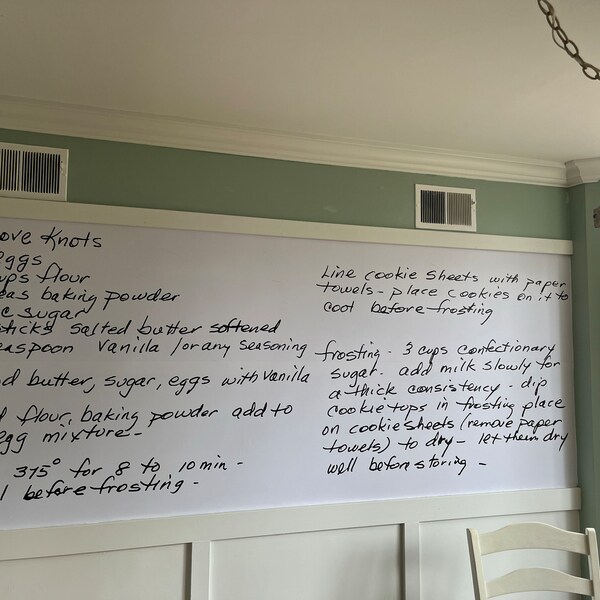 ove Knots
eggs
ups flour
eas baking powder
c sugar
sticks salted butter softened
easpoon Vanilla / or any seasoning
d butter, sugar, eggs with Vanilla
d flour, baking powder add to
egg mixture -
375° for 8 to 10 min -
l before frosting -
Line cookie sheets with paper
towels - place cookies on it to
cool before frosting
frosting - 3 cups confectionary
sugar. add milk slowly for
a thick consistency - dip
cookie tops in frosting place
on cookie sheets (remove paper
towels) to dry - let them dry
well before storing -